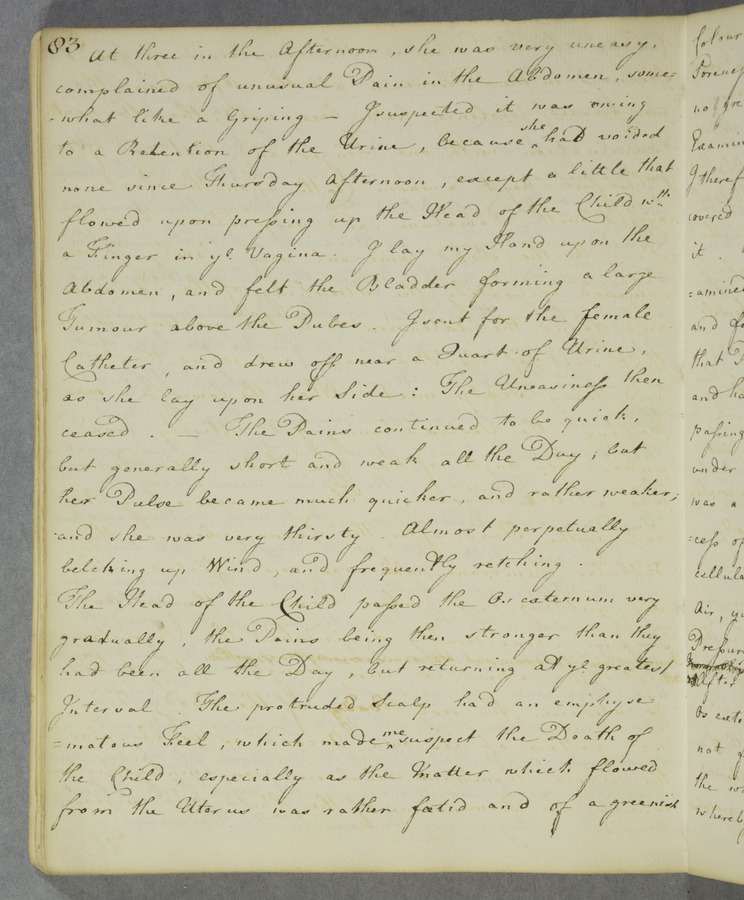 83
At three in the Afternoon, she was very uneasy,
complained of unusual Pain in the Abdomen, some=
=what like a Griping – I suspected it was owing
to a Retention of the Urine, because she had voided
none since Thursday Afternoon, except a little that
flowed upon pressing up the Head of the Child wth.
a Finger in ye. Vagina. I lay my Hand upon the
Abdomen, and felt the Bladder forming a large
Tumour above the Pubes. I sent for the female
Catheter, and drew off near a Quart of Urine,
as she lay upon her Side: The Uneasiness then
ceased. – The Pains continued to be quick,
but generally short and weak all the Day; but
her Pulse became much quicker, and rather weaker;
and she was very thirsty. Almost perpetually
belching up Wind, and frequently retching.
The Head of the Child passed the Os externum very
gradually, the Pains being then stronger than they
had been all the Day, but returning at ye. greatest
Interval. The protruded Scalp had an emphyse
=matous Feel, which made me suspect the Death of
the Child, especially as the Matter which flowed
from the Uterus was rather fœtid and of a greenish
Colour
not
Examin
I theref
covered
it.
=amined
and
that
and ha
passing
under
was a
=cess of
cellula
Air,
Pressur
After
Os exte
not
the
whereby